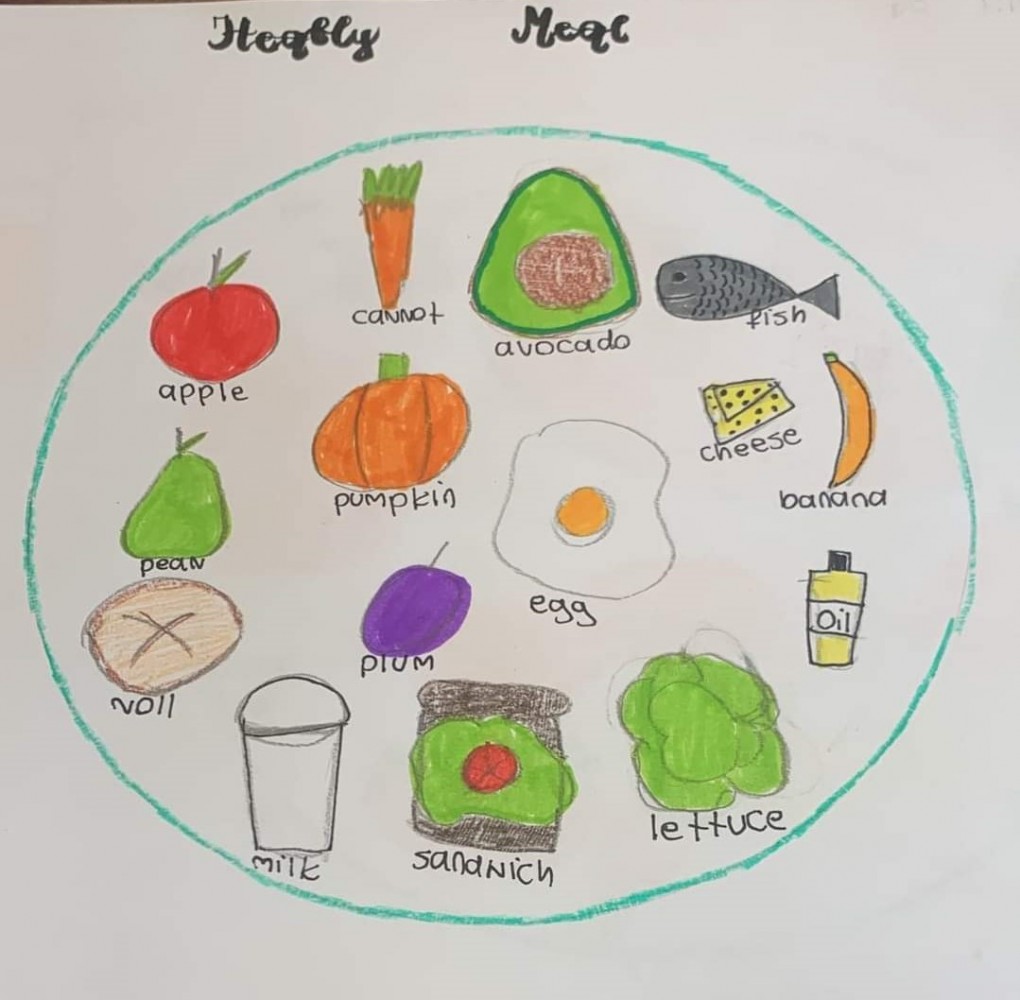 Heably Meal
carrot
avocado
fish
apple
cheese
pumpkin
banana
pear
egg
Oil
plum
roll
milk
sandwich
lettuce